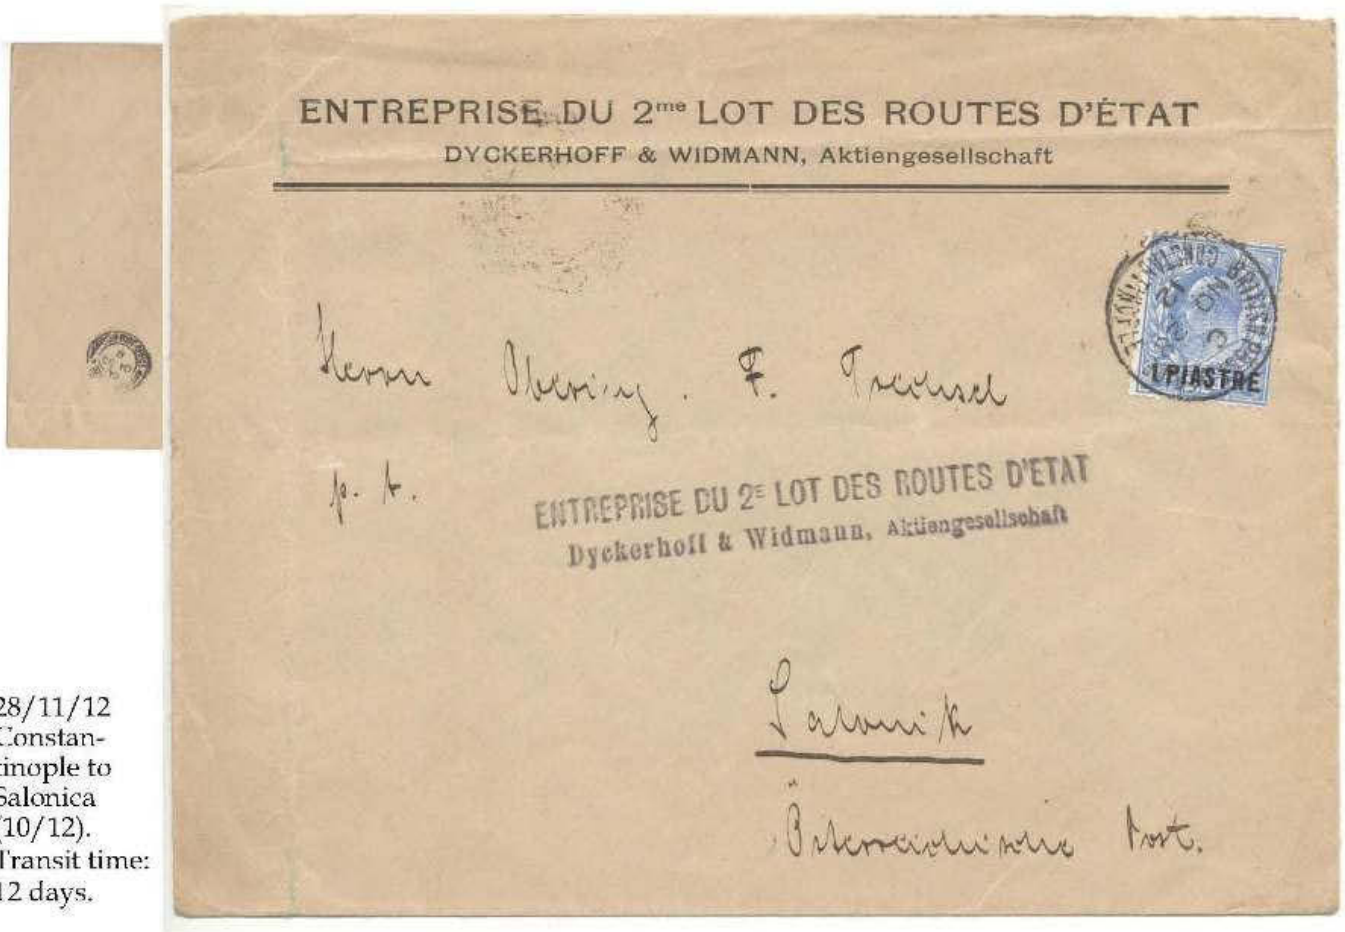 ENTREPRISE DU 2me LOT DES ROUTES D'ÉTAT
DYCKERHOFF & WIDMANN, Aktiengesellschaft
BRITISH P CONSTANTINOPLE
NO
12
1 PIASTRE
Herrn Obering. F. Trechsel
p. t.
ENTREPRISE DU 2E LOT DES ROUTES D'ETAT
Dyckerhoff & Widmann, Aktiengesellschaft
Salonik
Österreichische Post.
28/11/12
Constan-
tinople to
Salonica
(10/12).
Transit time:
12 days.